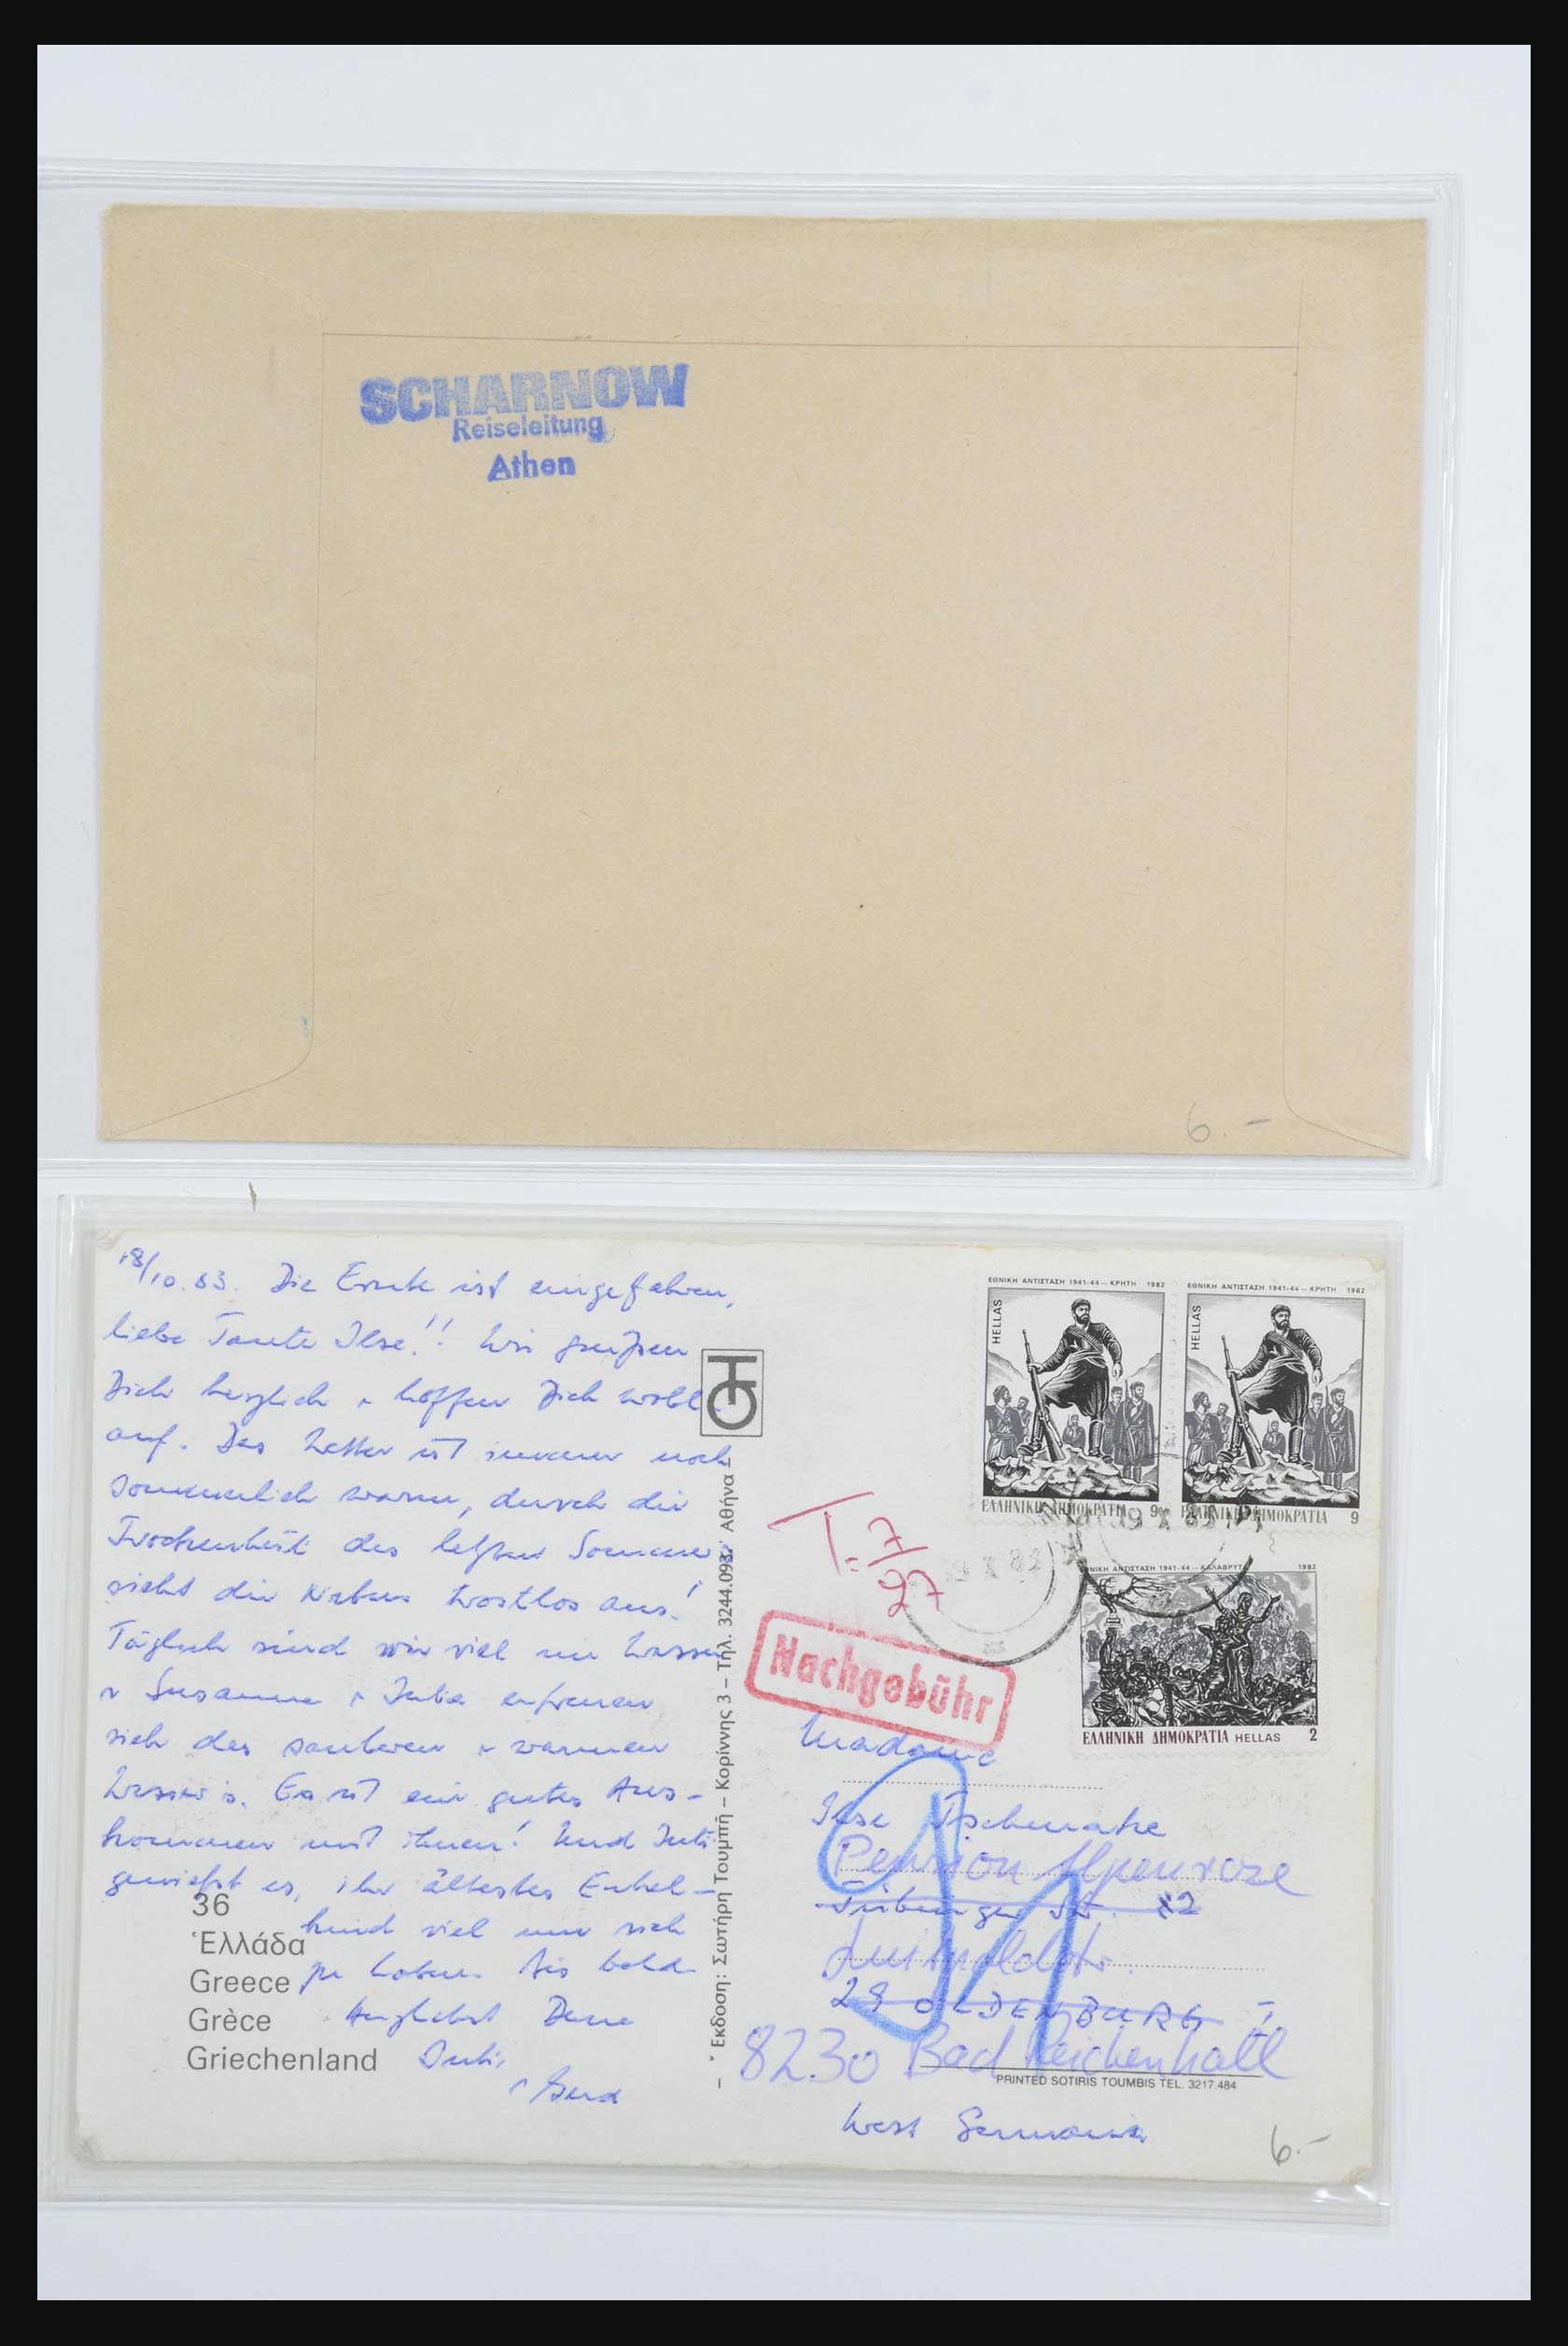 SCHARNOW
Reiseleitung
Athen
6.-
18/10.83. Die Ernte ist eingefahren,
liebe Tante Ilse!! Wir grüßen
Dich herzlich + hoffen Dich wohl-
auf. Das Wetter ist immer noch
sommerlich warm, durch die
Trockenheit des letzten Sommers
sieht die Natur trostlos aus!
Täglich sind wir viel im Wasser
+ Susanne + Julia erfreuen
sich des sauberen + warmen
Wassers. Es ist ein gutes Aus-
kommen mit ihnen! Und
genießt es, ihr ältestes Enkel-
kind viel um sich
zu haben. Bis bald
Herzlichst Deine
+ Gerd
36
Ἑλλάδα
Greece
Grèce
Griechenland
– Ἔκδοση: Σωτήρη Τουμπῆ – Κορίννης 3 – Τηλ. 3244.093, Ἀθήνα –
ΕΘΝΙΚΗ ΑΝΤΙΣΤΑΣΗ 1941-44 — ΚΡΗΤΗ 1982
HELLAS
ΕΛΛΗΝΙΚΗ ΔΗΜΟΚΡΑΤΙΑ 9
ΕΘΝΙΚΗ ΑΝΤΙΣΤΑΣΗ 1941-44 — ΚΡΗΤΗ 1982
HELLAS
ΕΛΛΗΝΙΚΗ ΔΗΜΟΚΡΑΤΙΑ 9
19 X 83
ΕΘΝΙΚΗ ΑΝΤΙΣΤΑΣΗ 1941-44 — ΚΑΛΑΒΡΥΤΑ 1982
ΕΛΛΗΝΙΚΗ ΔΗΜΟΚΡΑΤΙΑ HELLAS 2
X 83
T= 7/27
Nachgebühr
Madame
Ilse
Pension Alpenrose
82
29 OLDENBURG
8230 Bad Reichenhall
PRINTED SOTIRIS TOUMBIS TEL. 3217.484
West Germania
6.-